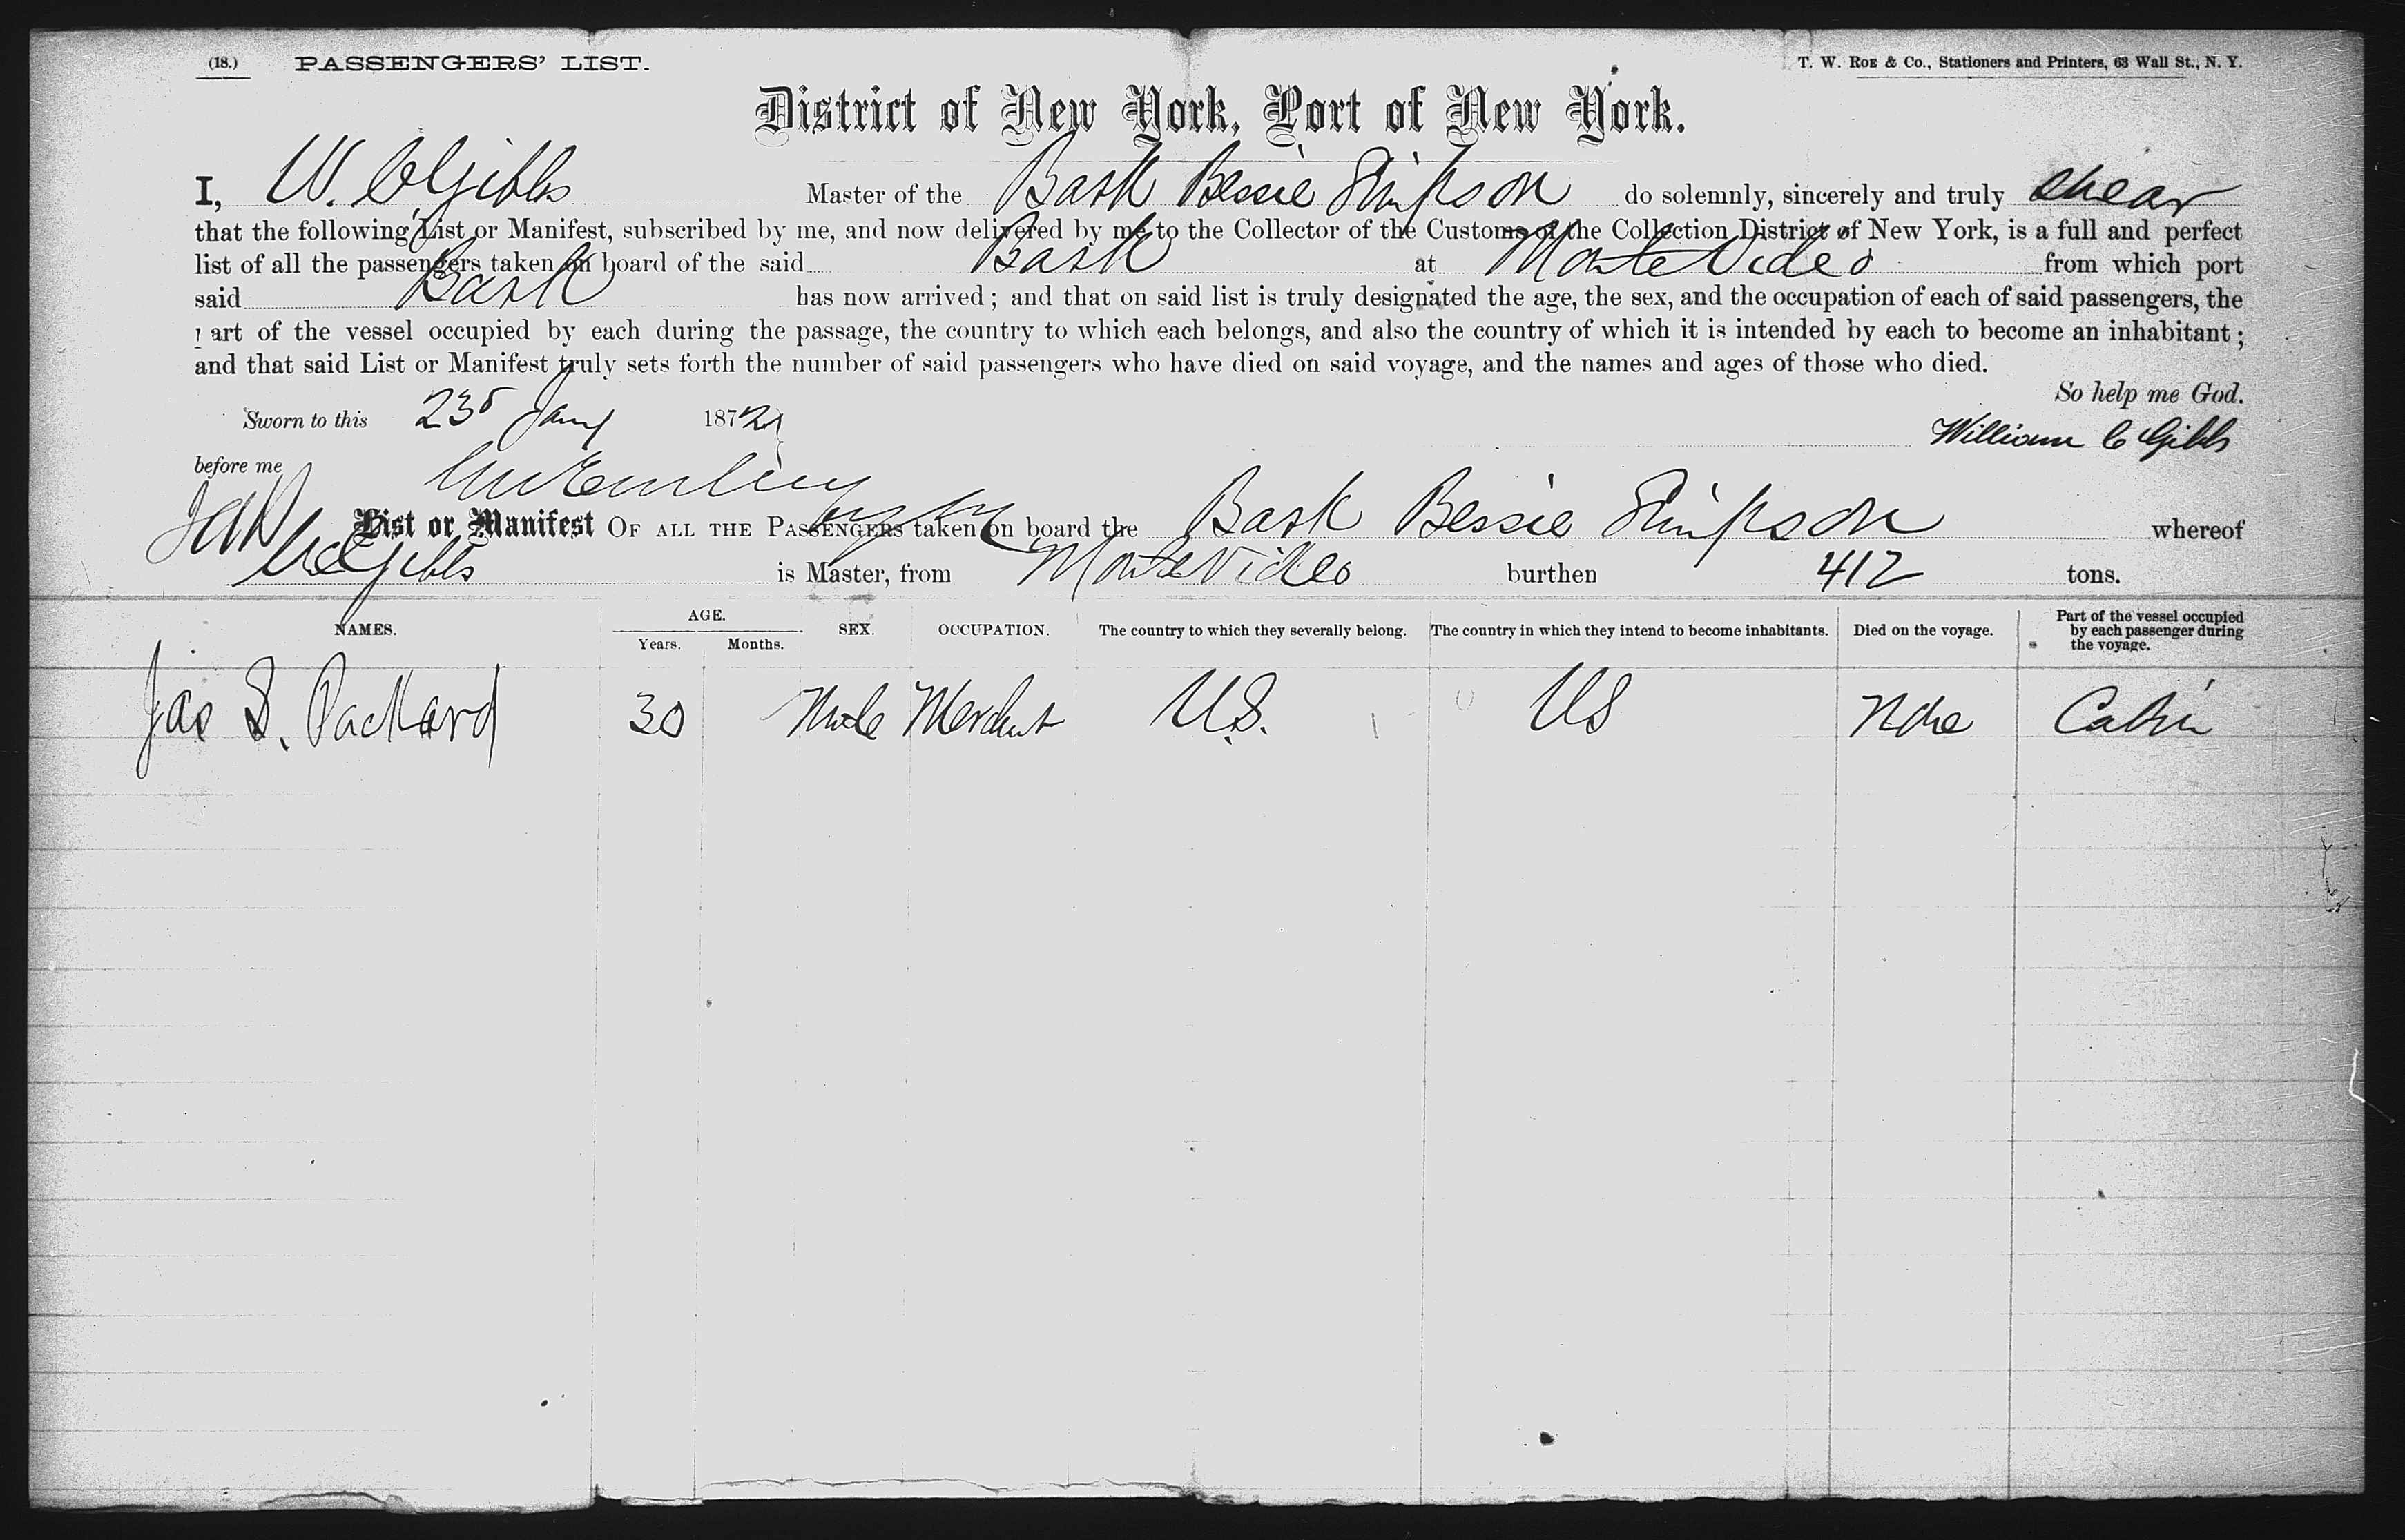 (18.) PASSENGERS' LIST. T. W. ROE & Co., Stationers and Printers, 63 Wall St., N. Y.
District of New York, Port of New York.
I, W. C Gibbs Master of the Bark Bessie Simpson do solemnly, sincerely and truly swear
that the following List or Manifest, subscribed by me, and now delivered by me to the Collector of the Customs of the Collection District of New York, is a full and perfect
list of all the passengers taken on board of the said Bark at Monte Video from which port
said Bark has now arrived; and that on said list is truly designated the age, the sex, and the occupation of each of said passengers, the
part of the vessel occupied by each during the passage, the country to which each belongs, and also the country of which it is intended by each to become an inhabitant;
and that said List or Manifest truly sets forth the number of said passengers who have died on said voyage, and the names and ages of those who died.
So help me God.
Sworn to this 23d Jany 1872 William C Gibbs
before me
List or Manifest OF ALL THE PASSENGERS taken on board the Bark Bessie Simpson whereof
W C Gibbs is Master, from Monte Video burthen 412 tons.
NAMES. AGE. Years. Months. SEX. OCCUPATION. The country to which they severally belong. The country in which they intend to become inhabitants. Died on the voyage. Part of the vessel occupied by each passenger during the voyage.
Jas S. Packard 30 Male Merchant U.S. US None Cabin